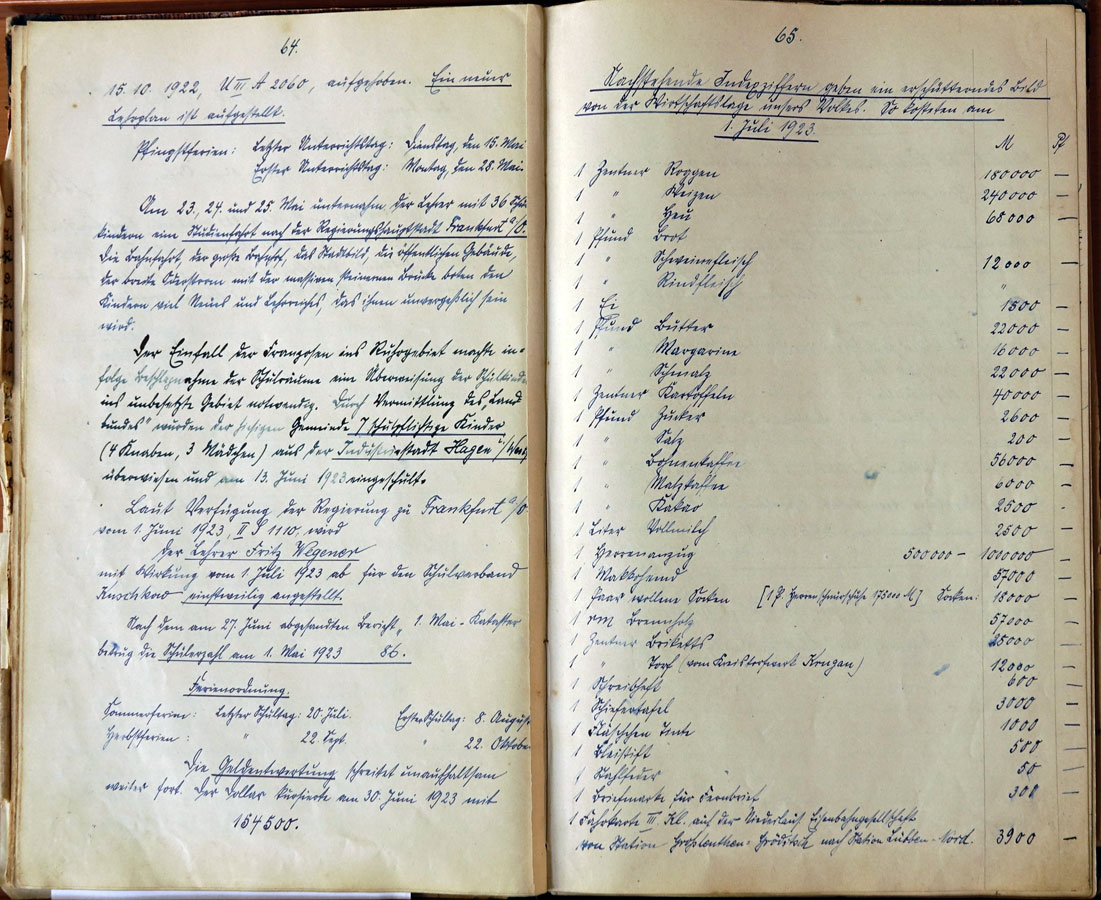 64.
15.10.1922, U III A 2060, aufgehoben. Ein neuer
Lehrplan ist aufgestellt.
Pfingstferien: Letzter Unterrichtstag: Dienstag, den 15. Mai
Erster Unterrichtstag: Montag, den 28. Mai.
Am 23., 24. und 25. Mai unternahm der Lehrer mit 36 Schul
kindern eine Studienfahrt nach der Regierungshauptstadt Frankfurt a/O.
Die Bahnfahrt, der große Bahnhof, das Stadtbild, die öffentlichen Gebäude,
der breite Oderstrom mit der massiven steinernen Brücke boten den
Kindern viel Neues und Lehrreiches, das ihnen unvergeßlich sein
wird.
Der Einfall der Franzosen ins Ruhrgebiet machte in-
folge Beschlagnahme der Schulräume eine Überweisung der Schulkinder
ins unbesetzte Gebiet notwendig. Durch Vermittlung des „Land
bundes" wurden der hiesigen Gemeinde 7 schulpflichtige Kinder
(4 Knaben, 3 Mädchen) aus der Industriestadt Hagen i/Westf.
überwiesen und am 13. Juni 1923 eingeschult.
Laut Verfügung der Regierung zu Frankfurt a/O
vom 1. Juni 1923, II S 1110, wird
der Lehrer Fritz Wegener
mit Wirkung vom 1. Juli 1923 ab für den Schulverband
einstweilig angestellt.
Nach dem am 27. Juni abgesandten Bericht „1. Mai-Kataster
betrug die Schülerzahl am 1. Mai 1923 86.
Ferienordnung.
Sommerferien: Letzter Schultag: 20. Juli. Erster Schultag: 8. August
Herbstferien: " 22. Sept. " 22. Oktober
Die Geldentwertung schreitet unaufhaltsam
weiter fort. Der Dollar kursierte am 30. Juni 1923 mit
154500.
65.
Nachstehende Indexziffern geben ein erschütterndes Bild
von der Wirtschaftslage unsers Volkes. So kosteten am
1. Juli 1923.
M Pf
1 Zentner Roggen 180000 —
1 " Weizen 240000 —
1 " Heu 65000 —
1 Pfund Brot
1 " Schweinefleisch 12000 —
1 " Rindfleisch "
1 Ei 1800 —
1 Pfund Butter 22000 —
1 " Margarine 16000 —
1 " Schmalz 22000 —
1 Zentner Kartoffeln 40000 —
1 Pfund Zucker 2600 —
1 " Salz 200 —
1 " Bohnenkaffee 56000 —
1 " Malzkaffee 6000 —
1 " Kakao 2500
1 Liter Vollmilch 2500 —
1 Herrenanzug 500000 — 1000000 —
1 Makkohemd 57000 —
1 Paar wollene Socken [1 P. Herrenschnürschuhe 175000 M.] Socken: 18000 —
1 rm Brennholz 57000 —
1 Zentner Briketts 25000 —
1 " Torf (vom Kreistorfwerk Krugau) 12000 —
1 Schreibheft 600 —
1 Schiefertafel 3000 —
1 Fläschchen Tinte 1000 —
1 Bleistift 500 —
1 Stahlfeder 50 —
1 Briefmarke für Fernbrief 300 —
1 Fahrkarte III. Kl. auf der Niederlaus. Eisenbahngesellschaft
von Station Groß Leuthen-Gröditsch nach Station Lübben-Nord. 3900 —